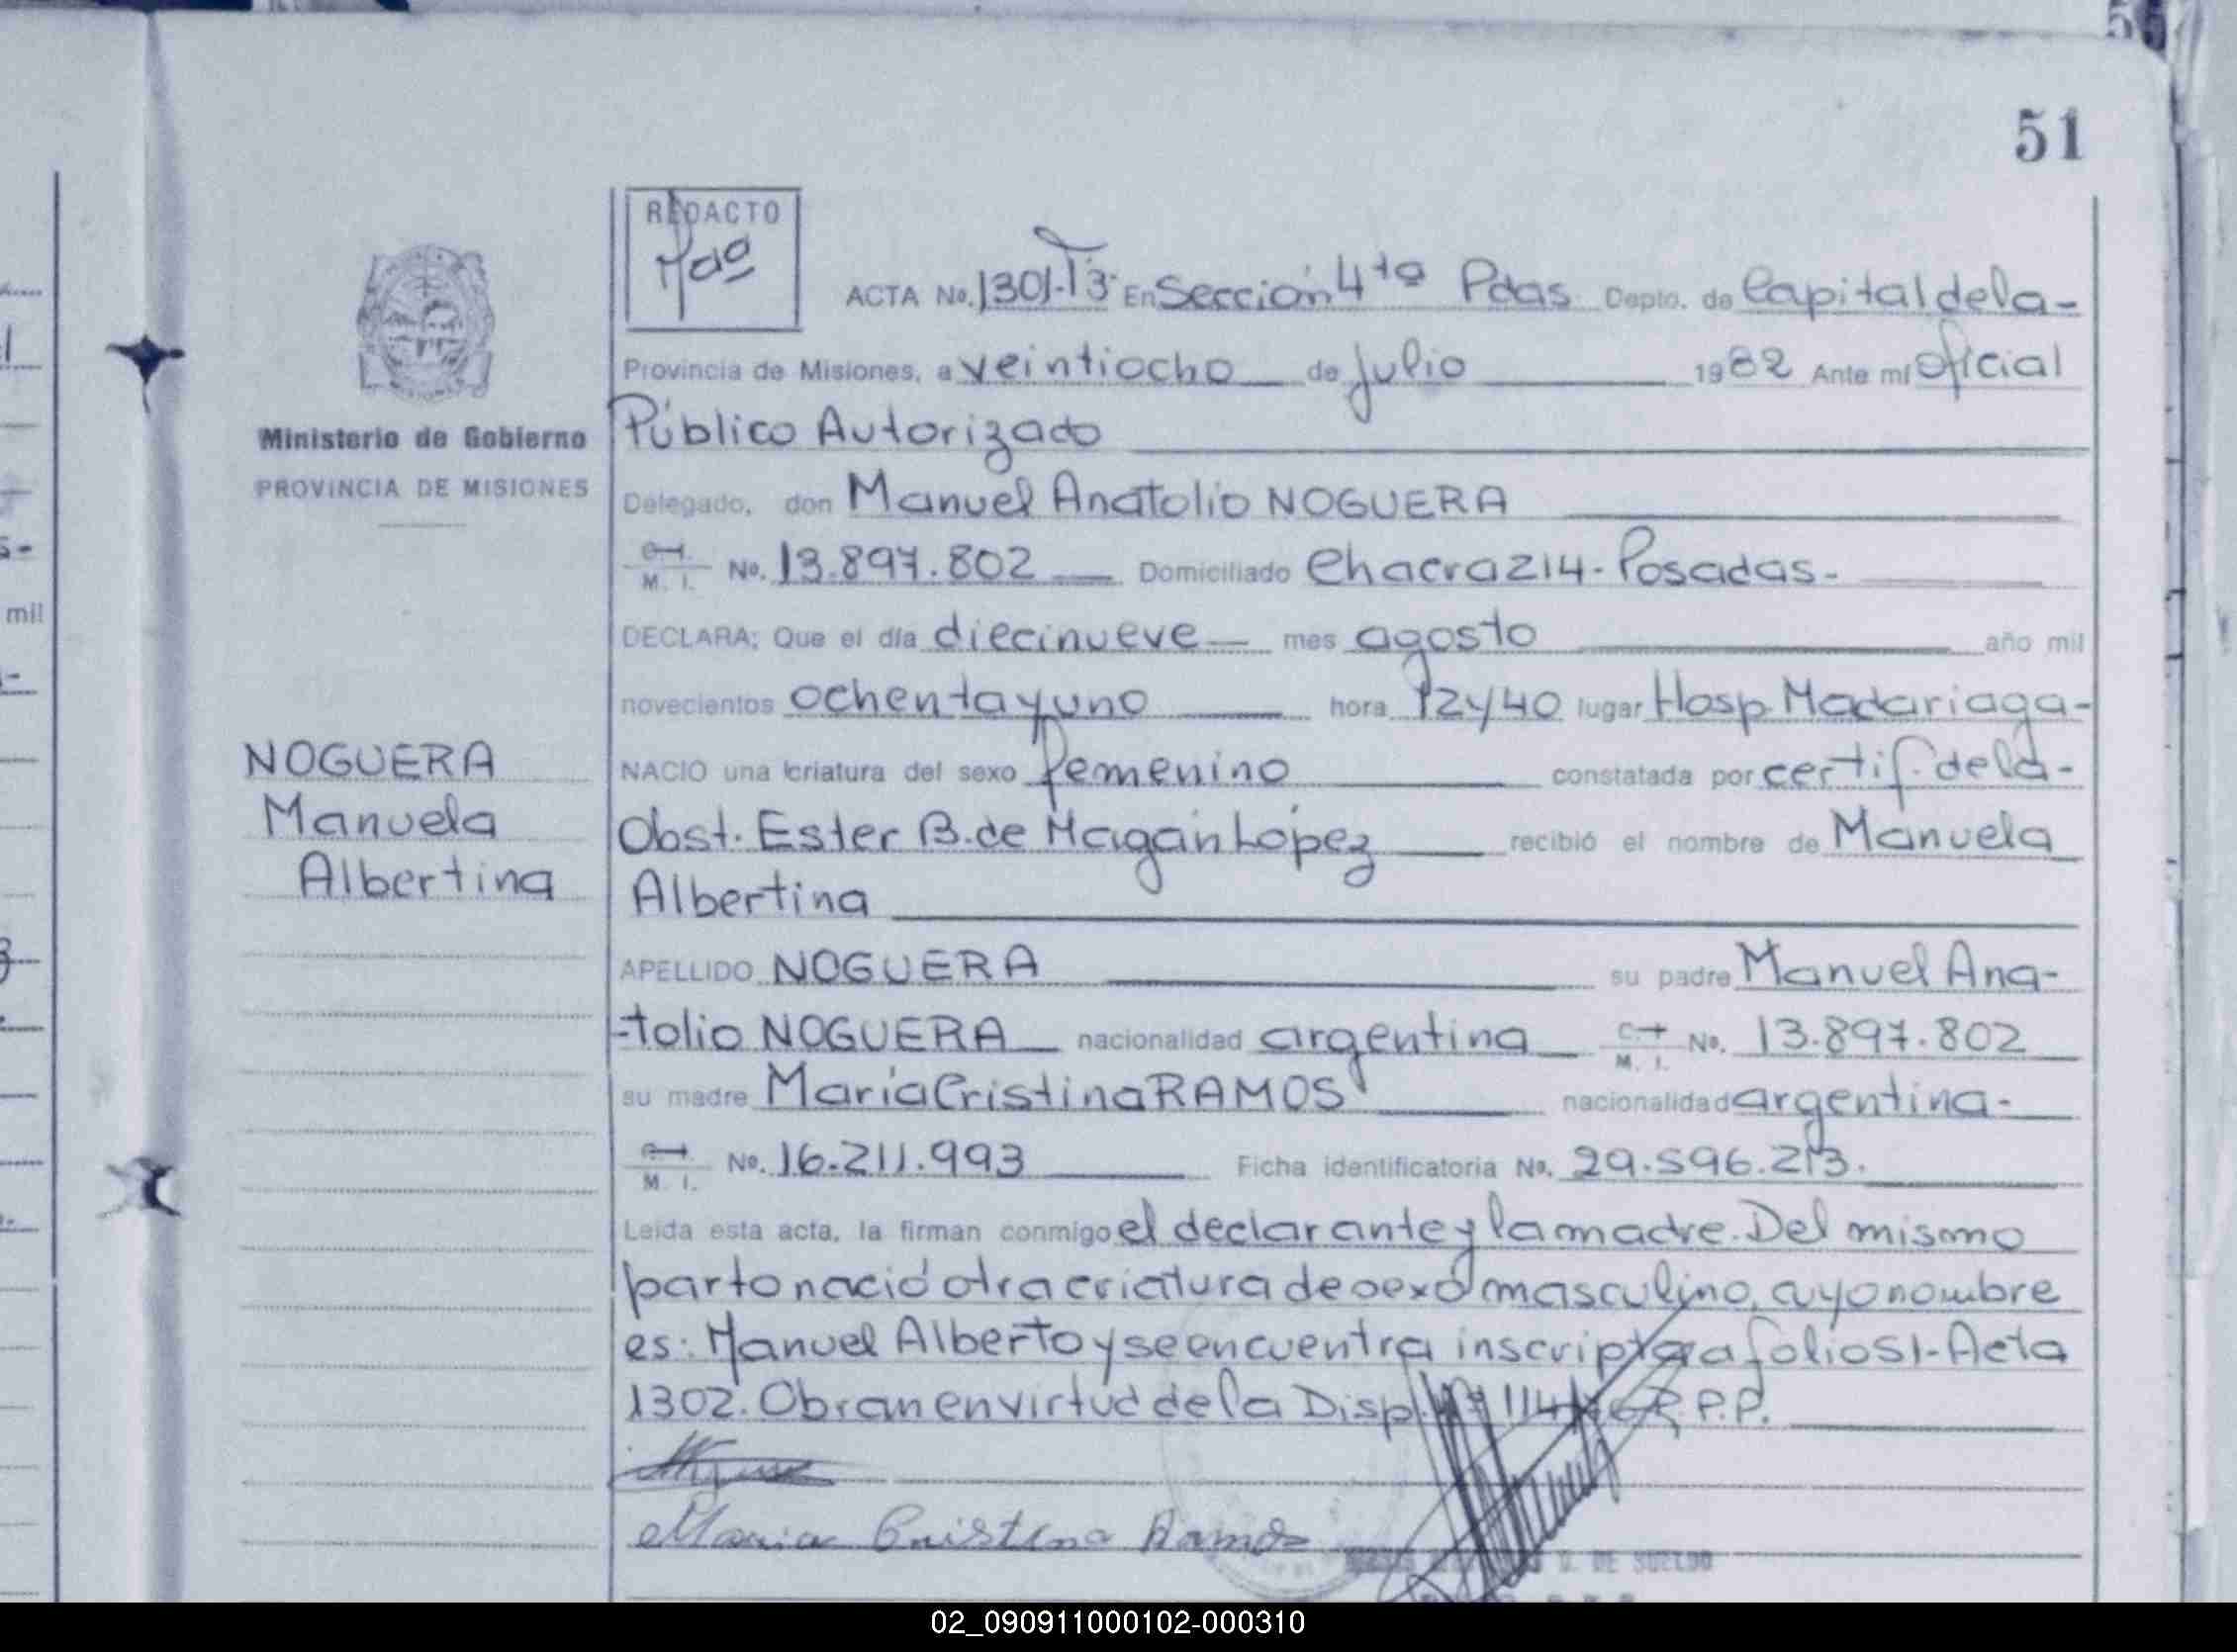 51
REDACTO
ACTA No. 1301-T3- En Sección 4ta Pdas. Depto. de Capital de la-
Provincia de Misiones, a veintiocho de julio 1982 Ante mí oficial
Público Autorizado
Ministerio de Gobierno
PROVINCIA DE MISIONES
Delegado, don Manuel Anatolio NOGUERA
M. I. No. 13.897.802 Domiciliado Chacra 214- Posadas-
DECLARA: Que el día diecinueve mes agosto año mil
novecientos ochenta y uno hora 12 y 40 lugar Hosp. Madariaga-
NOGUERA
Manuela
Albertina
NACIO una criatura del sexo femenino constatada por certif. de la-
Obst. Ester B. de Magán López recibió el nombre de Manuela
Albertina
APELLIDO NOGUERA su padre Manuel Ana-
-tolio NOGUERA nacionalidad argentina M. I. No. 13.897.802
su madre María Cristina RAMOS nacionalidad argentina-
M. I. No. 16.211.993 Ficha identificatoria No. 29.596.213.
Leída esta acta, la firman conmigo el declarante y la madre. Del mismo
parto nació otra criatura de sexo masculino, cuyo nombre
es: Manuel Alberto y se encuentra inscripta a folio 51- Acta
1302. Obran en virtud de la Disp. Nº 114 P.P.
Maria Cristina Ramos
DE SUELDO
02_090911000102-000310